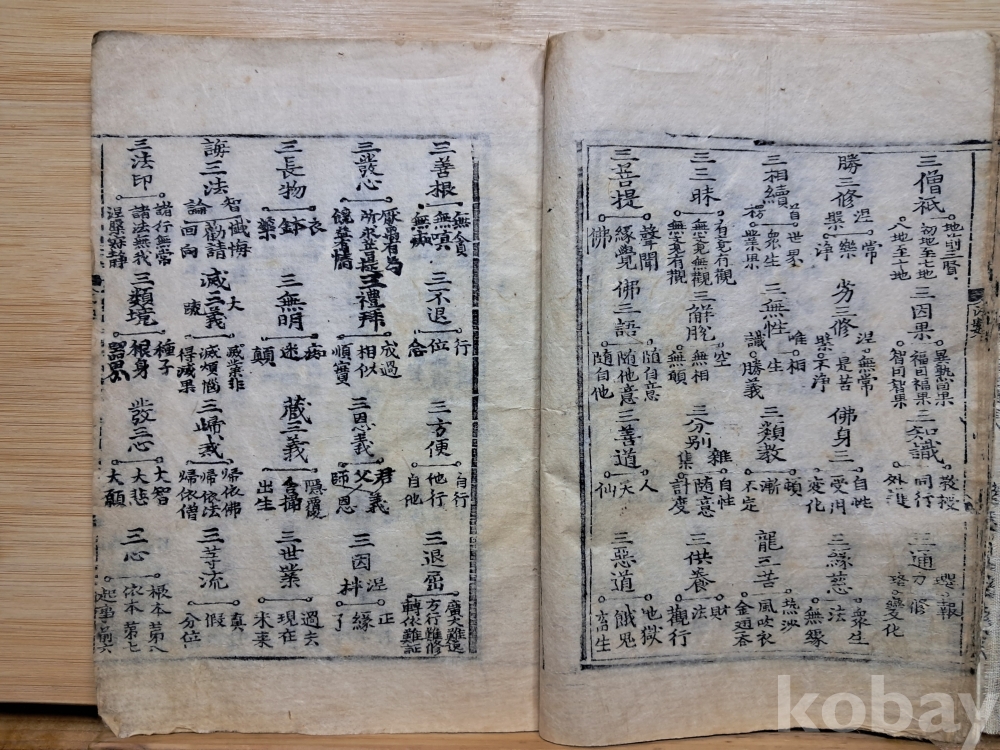 三僧祇
地前三賢
初地至七地
八地至十地
三因果
異熟因果
福因福果
智因智果
三知識
教授
同行
外護
三通力
報
修
變化
勝三修
涅槃
常
樂
淨
劣三修
涅槃
無常
是苦
不淨
佛身三
自性
受用
變化
三緣慈
眾生
法
無緣
三相續
首楞
世界
衆生
業果
三無性
唯識
相
生
勝義
三類教
頓
漸
不定
龍三苦
熱沙
風吹衣
三三昧
有覓有觀
無覓無觀
無覓有觀
三解脫
空
無相
無願
三分別
雜集
自性
隨意
計度
三供養
財
法
觀行
三菩提
聲聞
緣覺
佛
佛三語
隨自意
隨他意
隨自他
三善道
人
天
仙
三惡道
地獄
餓鬼
畜生
三善根
無貪
無嗔
無痴
三不退
行
位
念
三方便
自行
他行
自他
三退屈
万行難修
轉依難証
三發心
厭離有爲
所求菩提
饒益有情
三禮拜
成過
相似
順實
三恩義
君義
父恩
師恩
三因
涅
正
緣
了
三長物
衣
鉢
藥
三無明
迷
顛
藏三義
隱覆
含攝
出生
三世業
過去
現在
未來
誨三法
智論
懺悔
勸請
回向
滅三義
大
滅煩惱
得滅果
三歸戒
歸依佛
歸依法
歸依僧
三等流
真
假
分位
三法印
諸行無常
諸法無我
涅槃寂靜
三類境
種子
根身
器界
發三心
大智
大悲
大願
三心
根本 第八
依本 第七
起事 前六
kobay